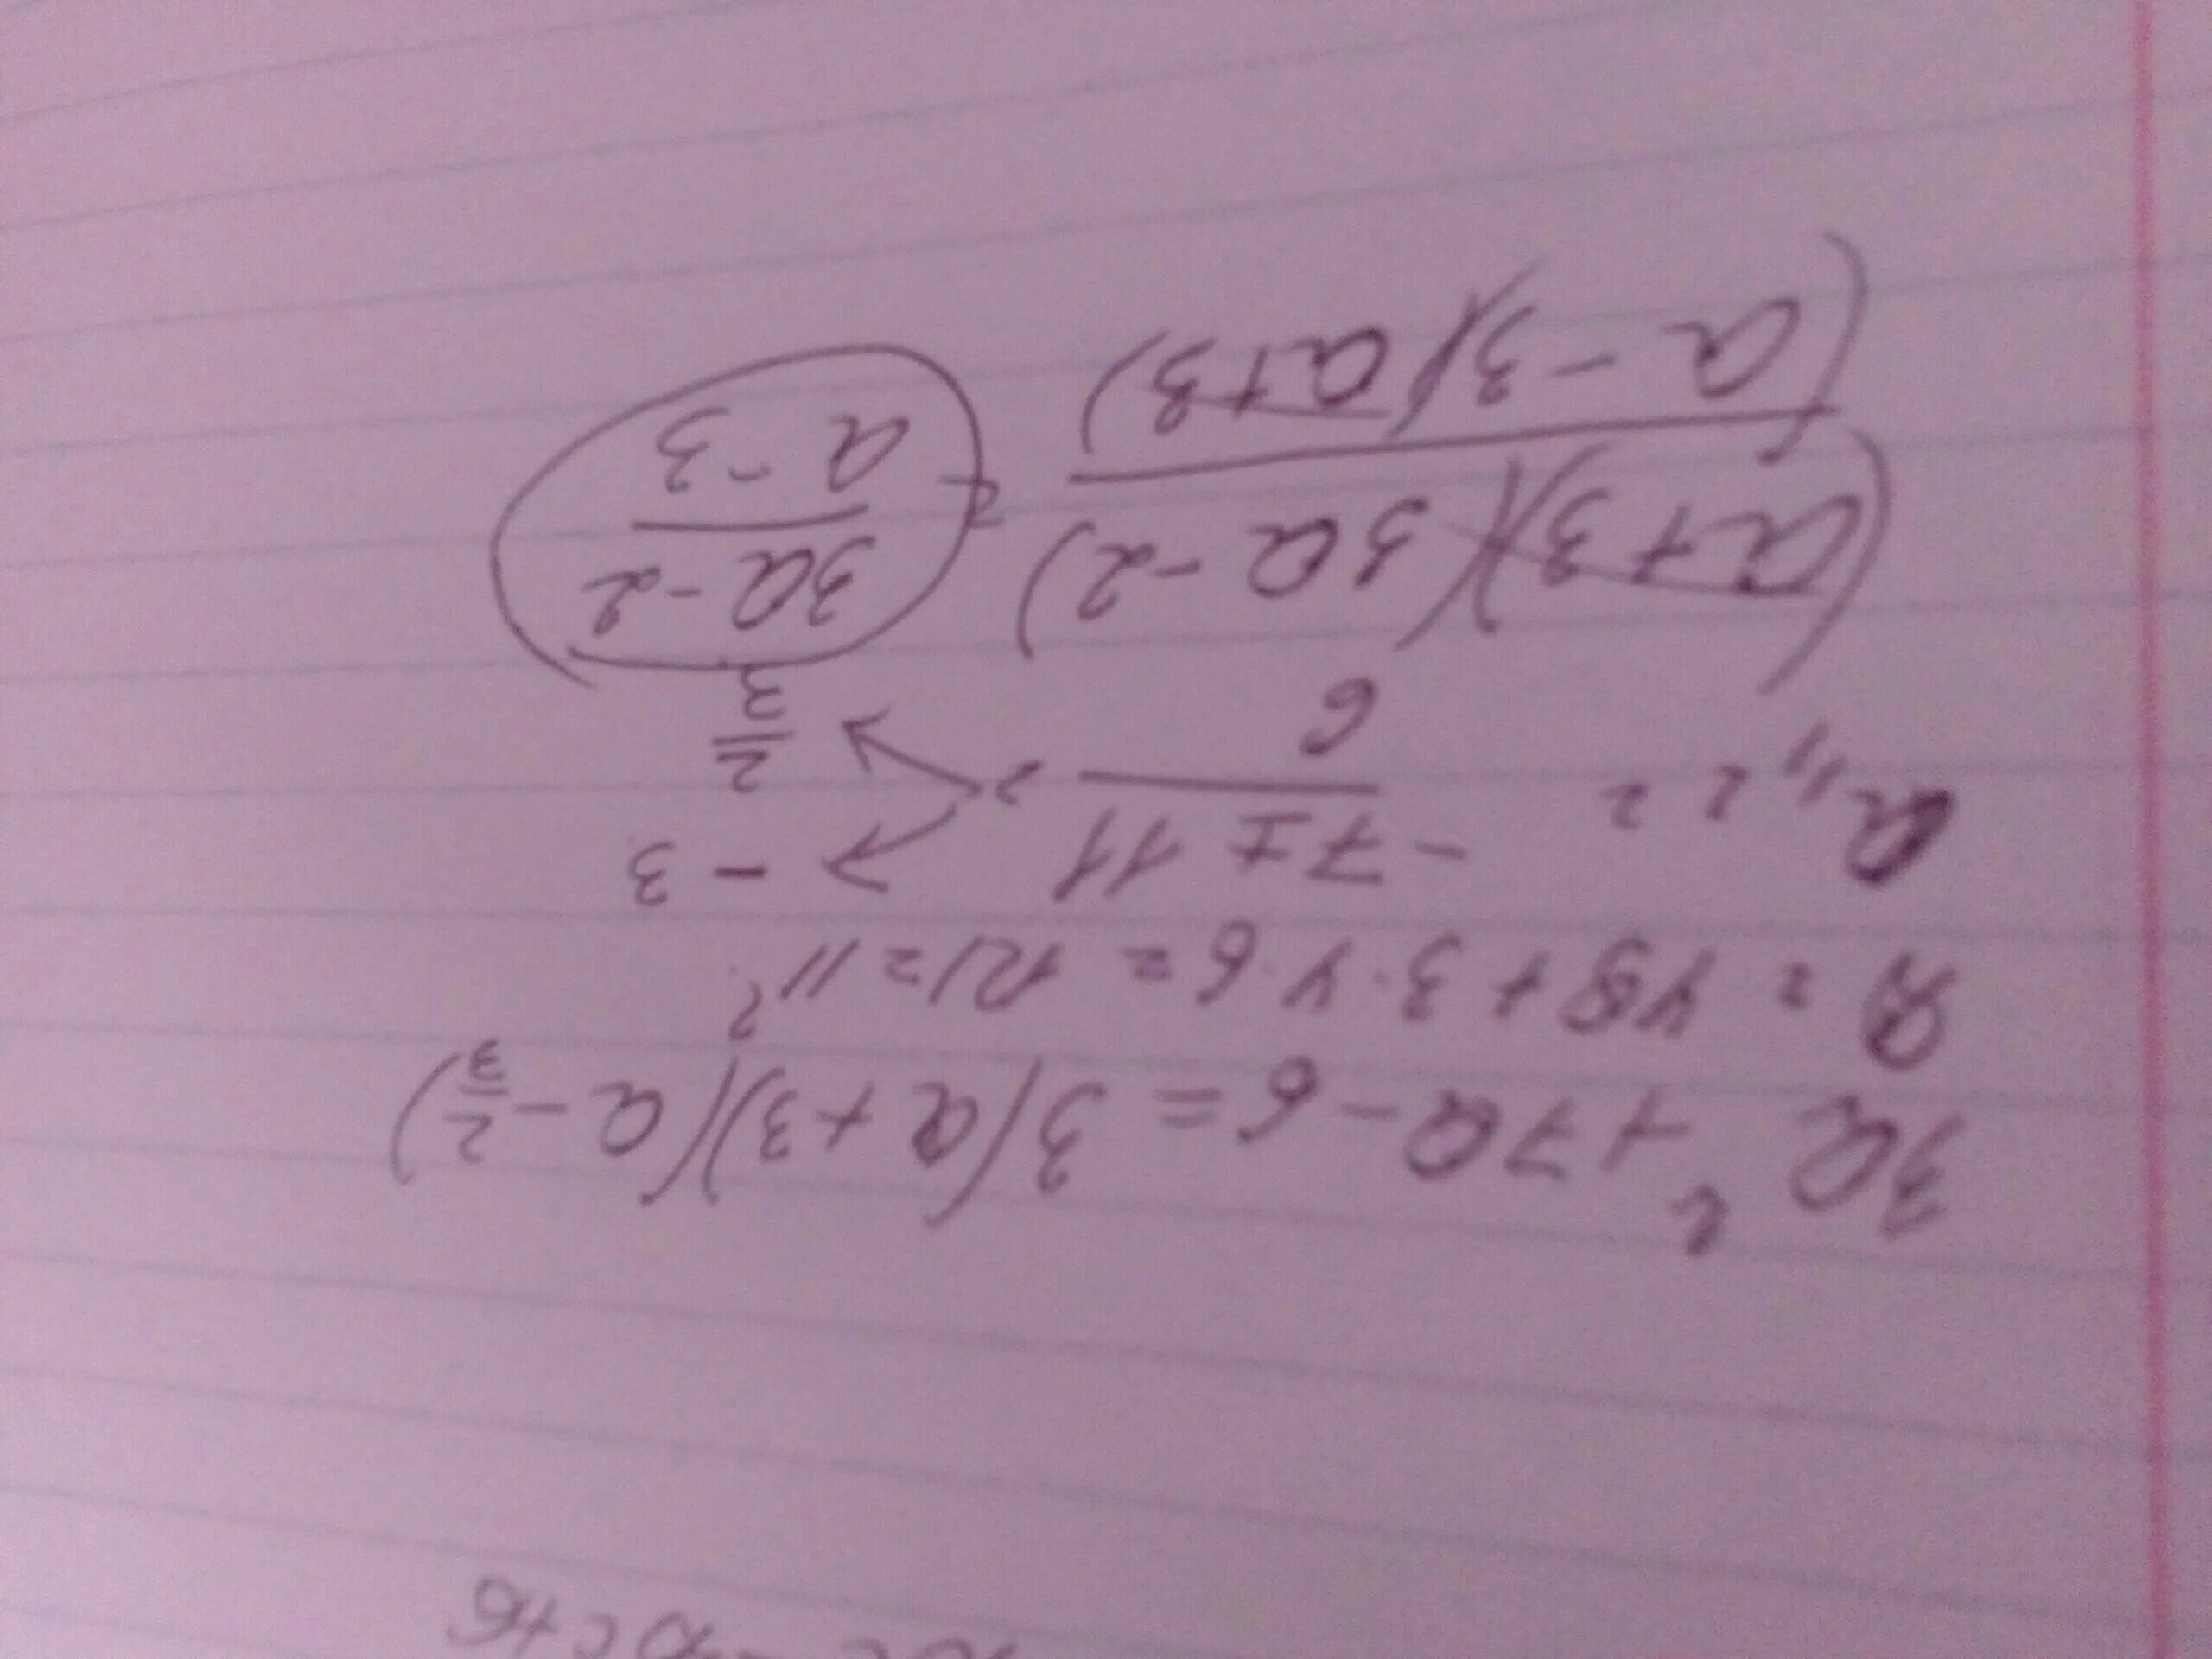 3a² + 7a - 6 = 3(a + 3)(a - 2/3)
D = 49 + 3·4·6 = 121 = 11²
a₁,₂ = (-7 ± 11)/6 = → -3 → 2/3
(a + 3)(3a - 2)/(a - 3)(a + 3) = (3a - 2)/(a - 3)